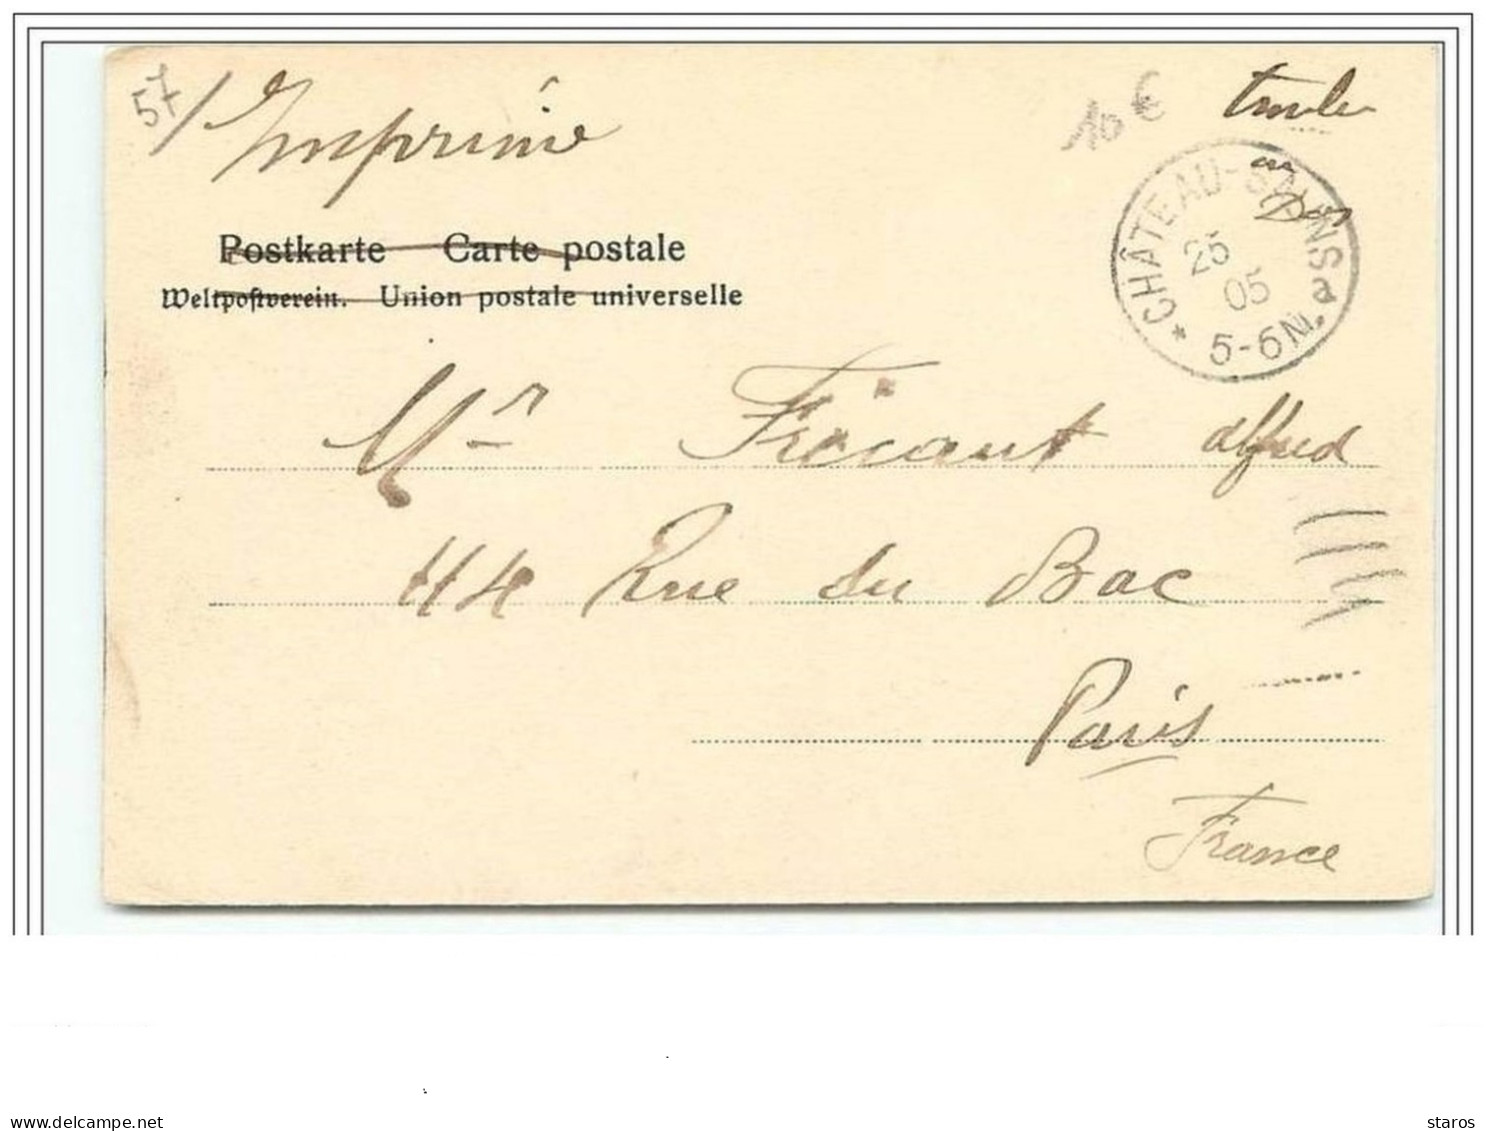 57/ Imprimé
10 €
timbre
au
Dos
CHÂTEAU-SALINS
25
05
5-6N.
Postkarte Carte postale
Weltpostverein. Union postale universelle
Mr Frécaut alfred
44 Rue du Bac
Paris
France
delcampe.net
staros